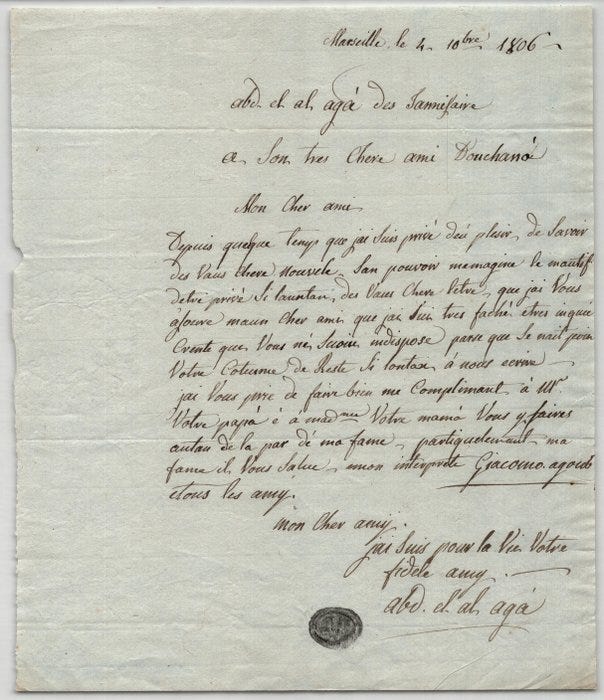 Marseille, le 4 10bre 1806
abd. el. al. agá des Jannifaire
a Son tres Chere ami Douchané
Mon Cher ami
Depuis quelque temp que jai Suis privé deú plesir de Savoir
des Vaus Chere nouvele, San pouvoir mamagine le mautif
detre privé Si launtan, des Vaus Chere letre, que jai Vous
asoure maun Cher ami que jai Suis tres faché etres inquié
Crente que Vous né Suoies indispose parse que Se nait poin
Votre Cotume de Reste Si lontan à nous ecrire
jai Vous prie de faire bien me Complimant à Mr.
Votre papá é a madme Votre mamá Vous y faires
autan de la par dé ma fame, partiquelement ma
fame il Vous Salue, mon interprete Giacomo.
etous les amy.
mon Cher amy.
jai Suis pour la Vie Votre
fidele amy.
abd. el. al. agá